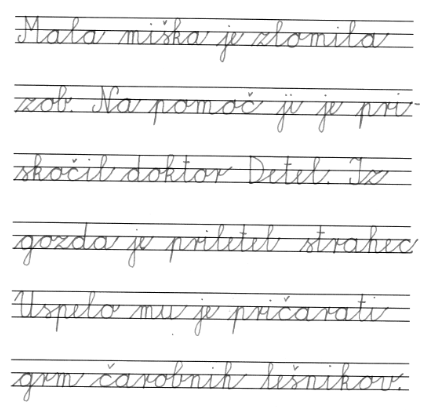 Mala miška je zlomila
zob. Na pomoč ji je pri-
skočil doktor Detel. Iz
gozda je priletel strahec
Uspelo mu je pričarati
grm čarobnih lešnikov.